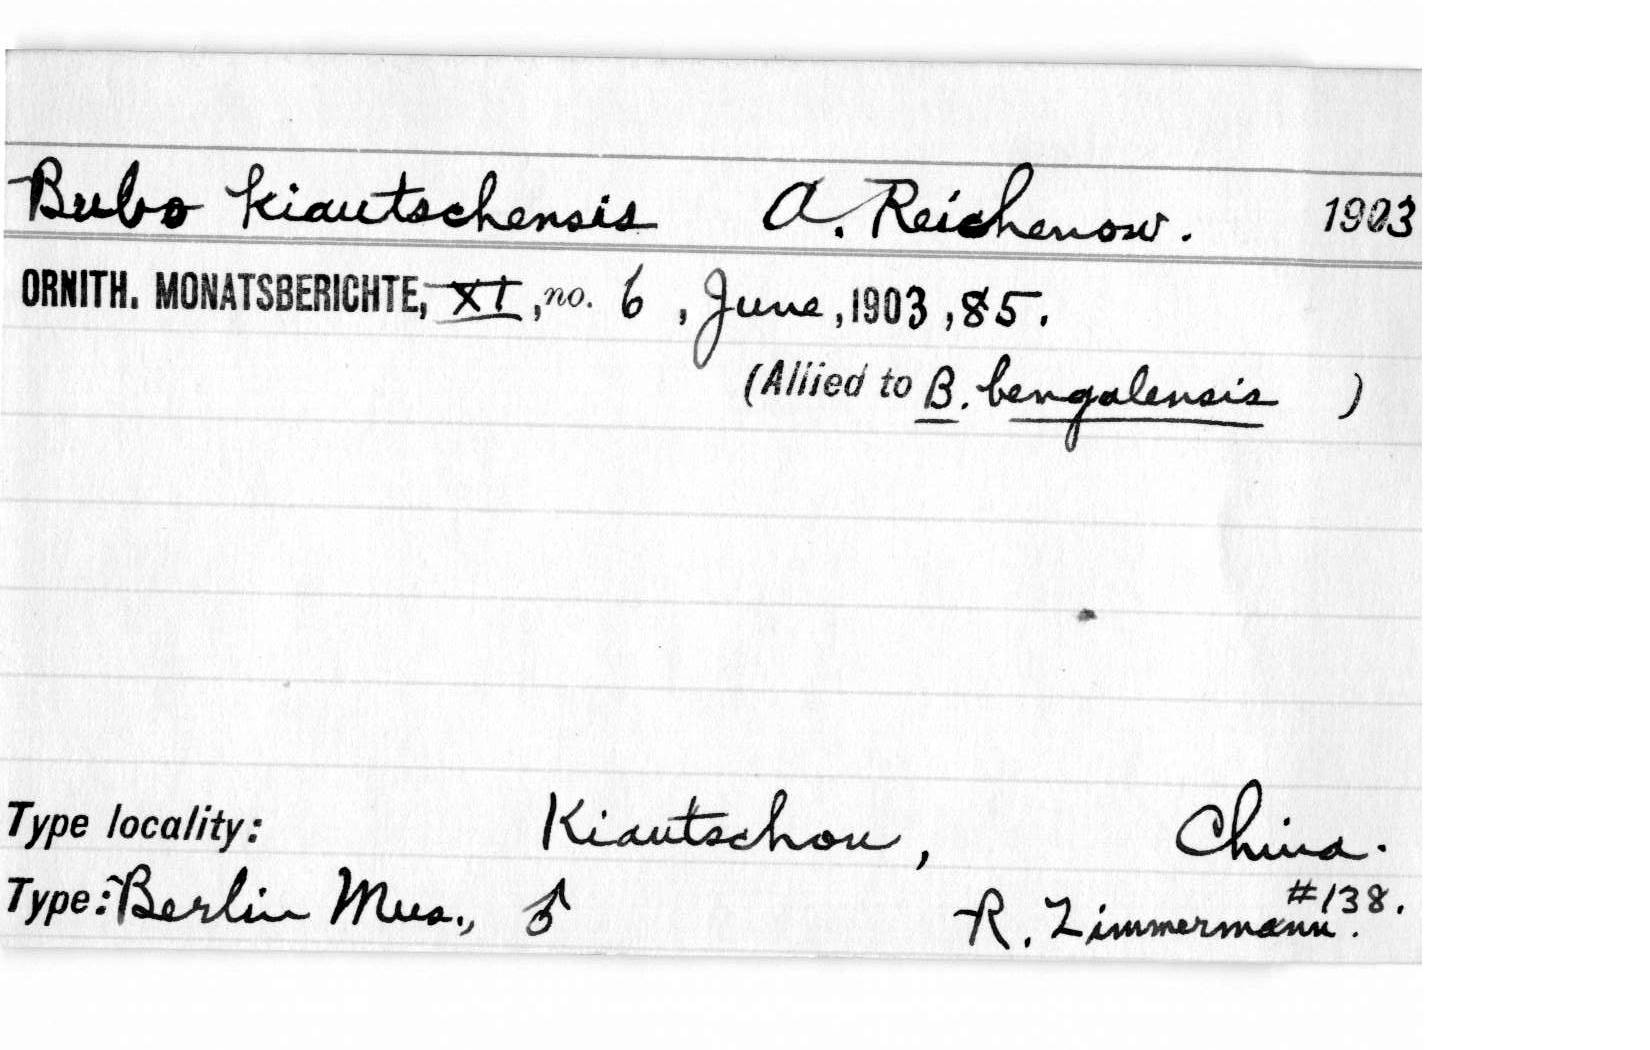 Bubo kiautschensis A. Reichenow. 1903
ORNITH. MONATSBERICHTE, XI, no. 6, June, 1903, 85.
(Allied to B. bengalensis )
Type locality: Kiautschou, China.
Type: Berlin Mus., ♂ R. Zimmermann. #138.